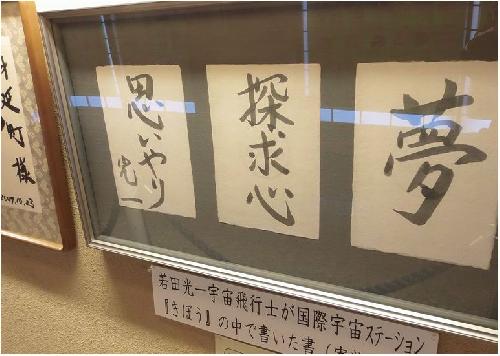 夢
探求心
思いやり
光一
若田光一宇宙飛行士が国際宇宙ステーション
『きぼう』の中で書いた書
町様